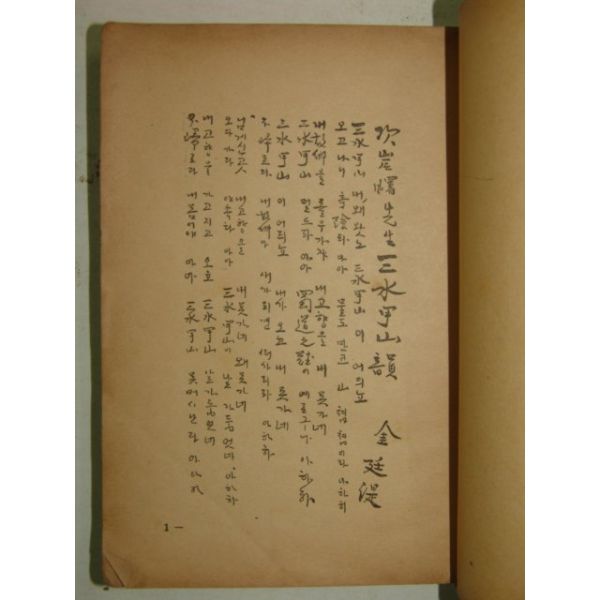 次岸曙先生三水甲山韻
金廷湜
三水甲山 내 왜 왓노 三水甲山 이 어듸뇨
오고나니 奇險타 아하 물도 만코 山 쳡쳡이라 아하하
내 故鄕을 돌우가쟈 내 고향을 내 못가네
三水甲山 멀드라 아하 蜀道之難이 예로구나 아하하
三水甲山 이 어듸뇨 내가 오고 내 못가네
不歸로다 내 故鄕아 새가되면 떠가리라 아하하
님게신곳 내고향을 내 못가네 내 못가네
오다 가다 야속타 아하 三水甲山이 날 가둡엇네 아하하
내고향을 가고지고 오호 三水甲山 날 가둡엇네
不歸로다 내 몸이야 아하 三水甲山 못버서난다 아하하
1 —